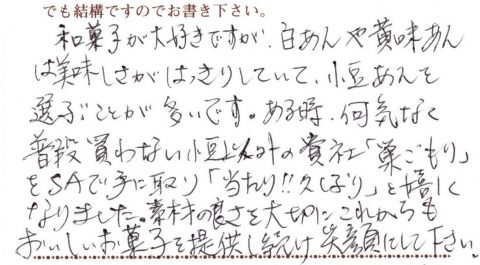 でも結構ですのでお書き下さい。
和菓子が大好きですが、白あんや黄味あん
は美味しさがはっきりしていて、小豆あんを
選ぶことが多いです。ある時、何気なく
普段買わない小豆以外の貴社「巣ごもり」
をSAで手に取り「当たり!!久しぶり」と嬉しく
なりました。素材の良さを大切にこれからも
おいしいお菓子を提供し続け笑顔にして下さい。